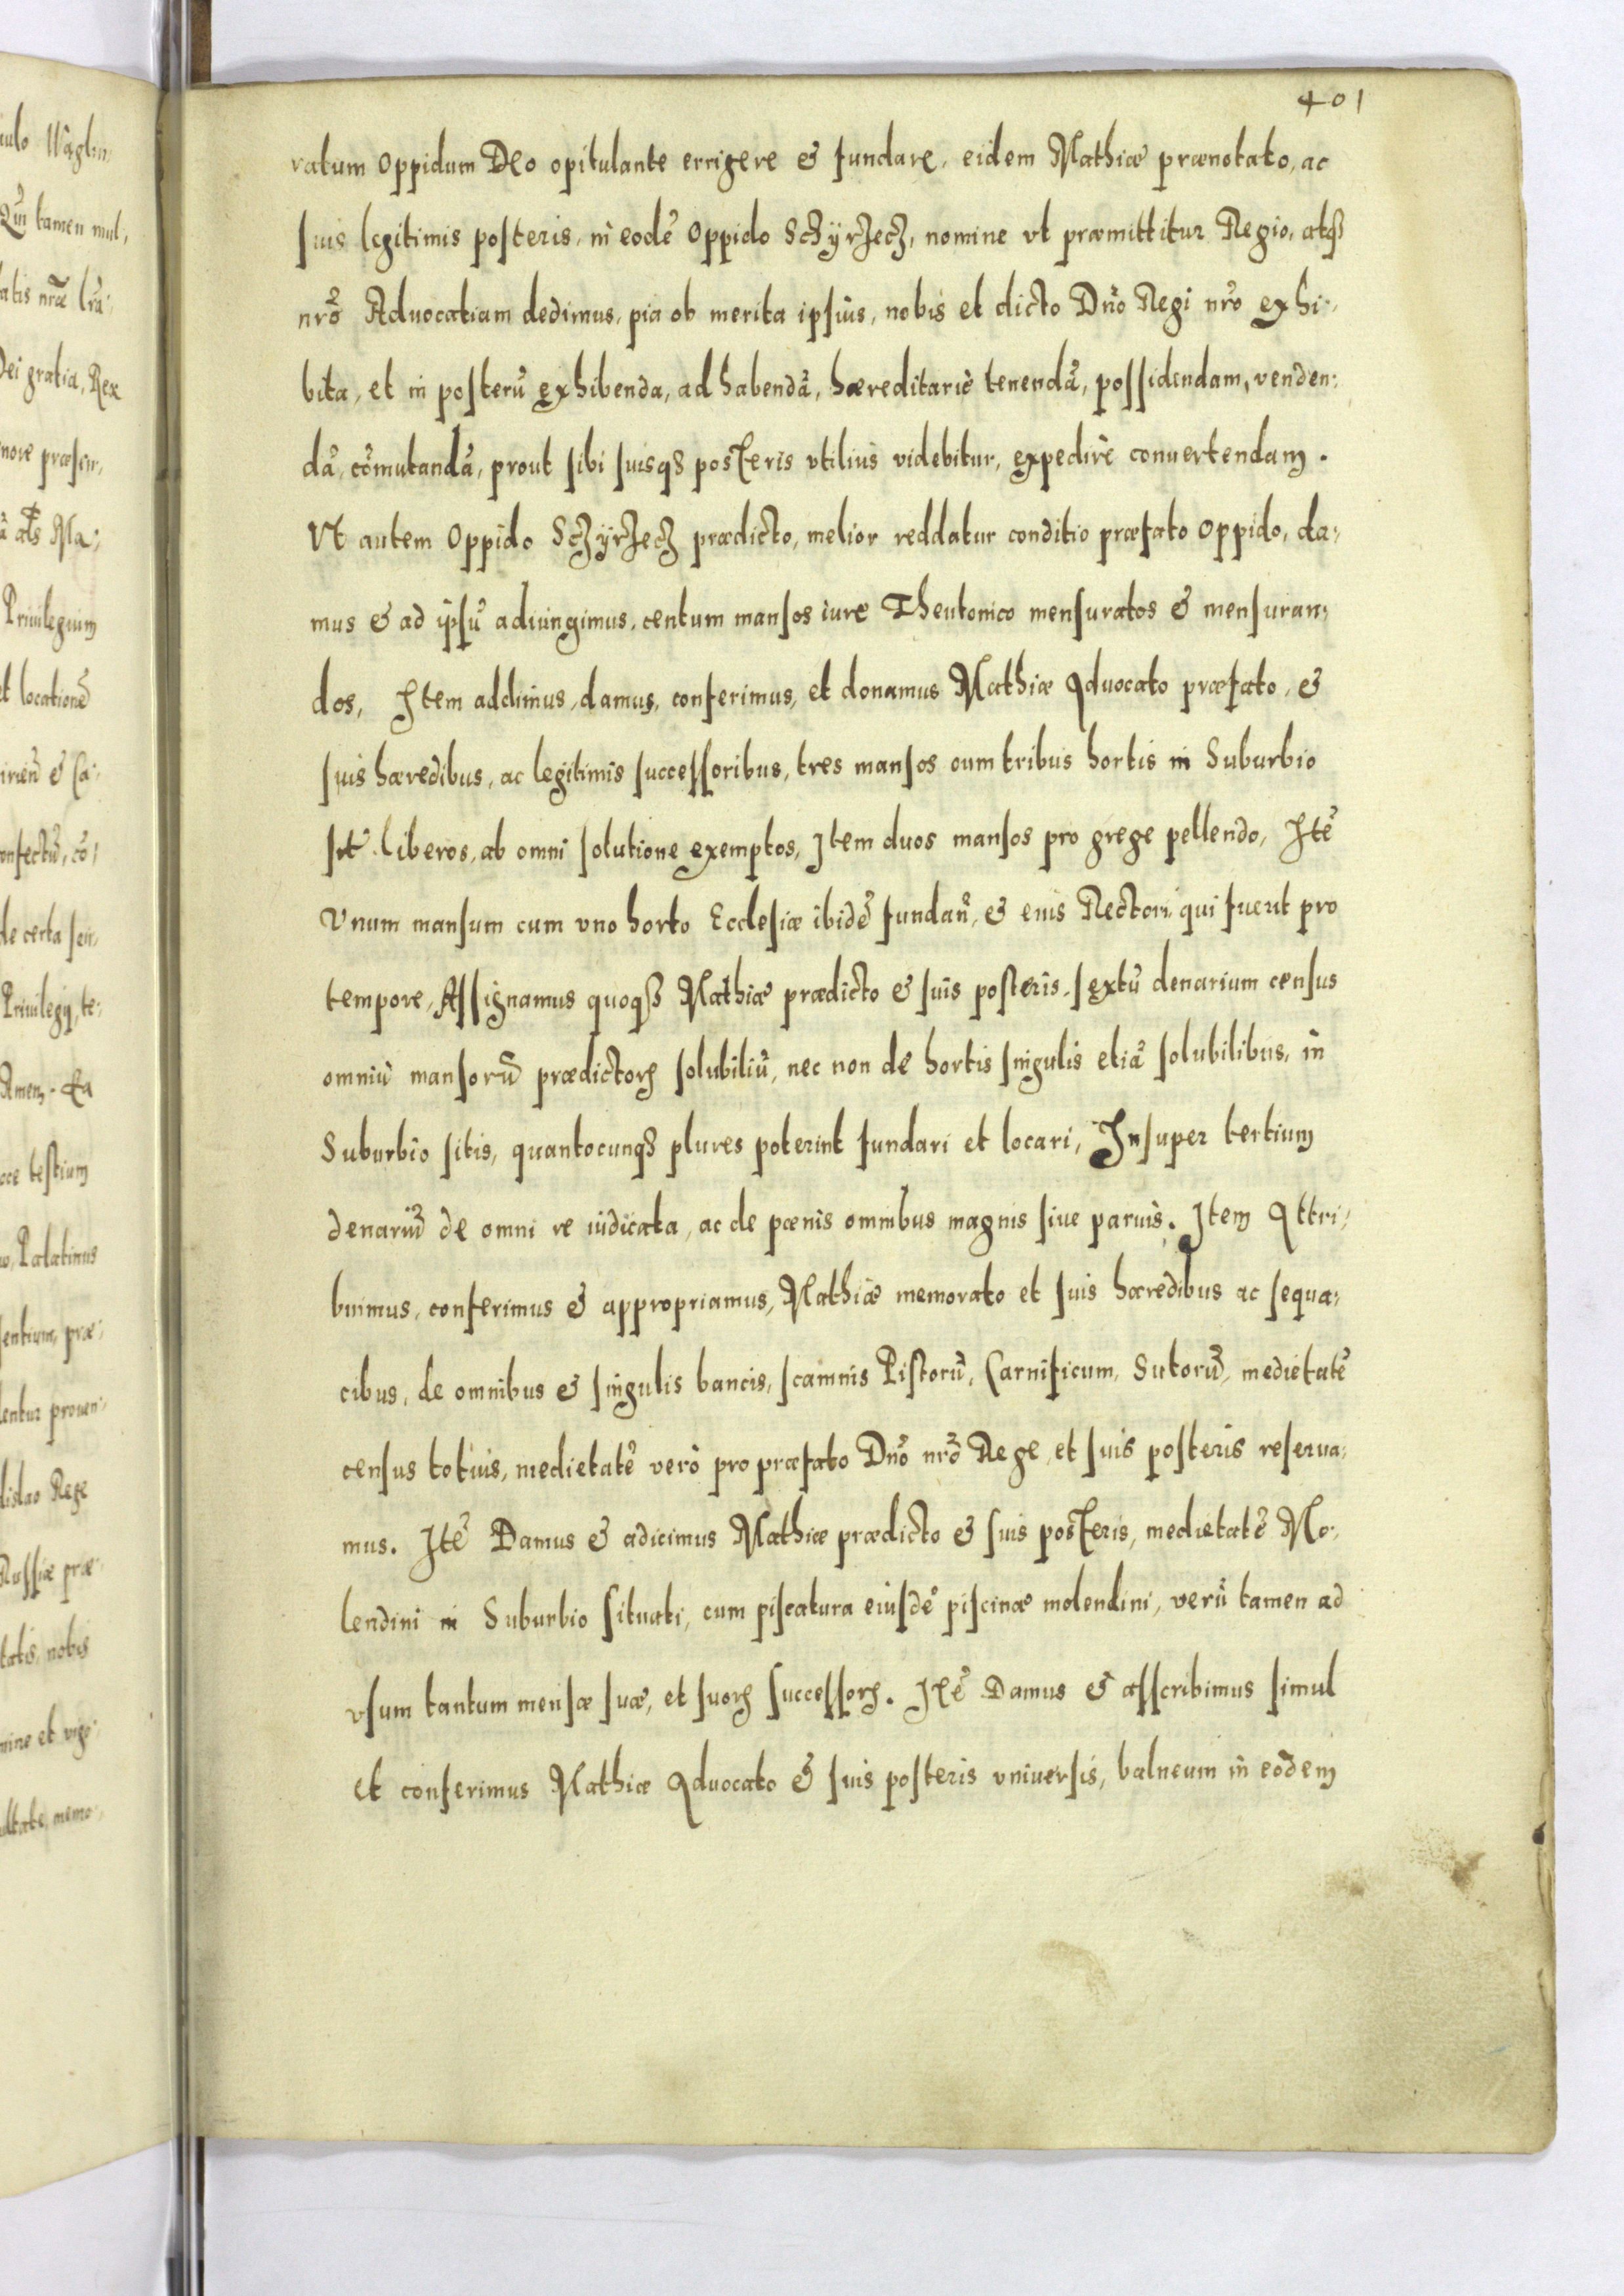 401
ratum Oppidum Deo opitulante errigere & fundare, eidem Mathiæ prænotato, ac
suis legitimis posteris, in eodē Oppido Sczyrzecz, nomine vt præmittitur Regio, atqꝫ
nrō Aduocatiam dedimus, pia ob merita ipsius, nobis et dicto Dnō Regi nrō exhi-
bita, et in posterū exhibenda, ad habendā, hæreditariè tenendā, possidendam, venden:
dā, cōmutandā, prout sibi suisqꝫ posteris vtilius videbitur, expedirè conuertendam.
Vt autem Oppido Sczyrzecz prædicto, melior reddatur conditio præfato Oppido, da:
mus & ad ipsū adiungimus, centum mansos iure Theutonico mensuratos & mensuran:
dos, Item addimus, damus, conferimus, et donamus Mathiæ Aduocato præfato, &
suis hæredibus, ac legitimis successoribus, tres mansos cum tribus hortis in Suburbio
liberos, ab omni solutione exemptos, Item duos mansos pro grege pellendo, Itē
Vnum mansum cum vno horto Ecclesiæ ibidē fundañ, & eius Rectori, qui fuerit pro
tempore, Assignamus quoqꝫ Mathiæ prædicto & suis posteris, sextū denarium census
omniū mansorū prædictoꝝ solubiliū, nec non de hortis singulis etiā solubilibus, in
Suburbio sitis, quantocunqꝫ plures poterint fundari et locari, Insuper tertium
denariū de omni re iudicata, ac de pœnis omnibus magnis siue paruis. Item Attri:
buimus, conferimus & appropriamus, Mathiæ memorato et suis hæredibus ac sequa:
cibus, de omnibus & singulis bancis, scamnis Pistorū, Carnificum, Sutorū, medietatē
census totius, medietatē verò pro præfato Dnō nrō Rege, et suis posteris reserua:
mus. Itē Damus & adicimus Mathiæ prædicto & suis posteris, medietatē Mo:
lendini in Suburbio situati, cum piscatura eiusdē piscinæ molendini, verū tamen ad
vsum tantum mensæ suæ, et suoꝝ successoꝝ. Itē Damus & asscribimus simul
et conferimus Mathiæ Aduocato & suis posteris vniuersis, balneum in eodem